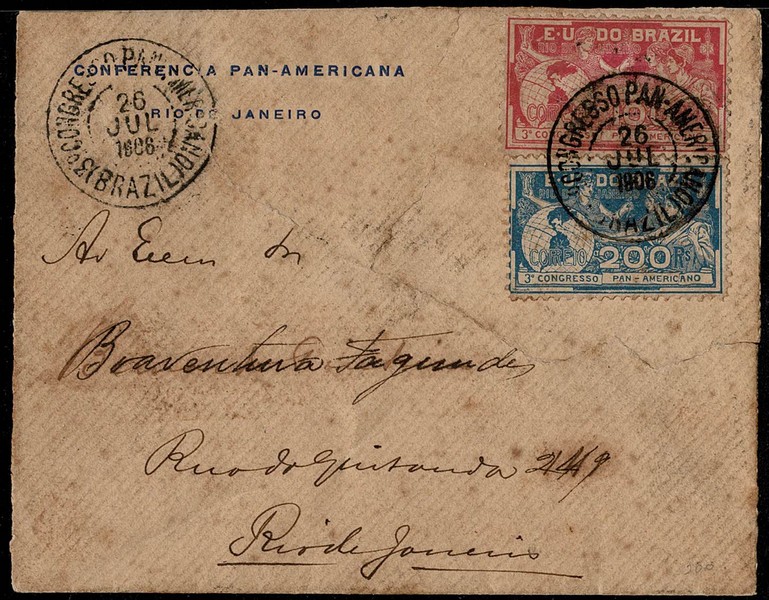 CONFERENCIA PAN-AMERICANA
RIO DE JANEIRO
3º CONGRESSO PAN-AMERICANO (BRAZIL)
26
JUL
1906
E·U DO BRAZIL
RIO DE JANEIRO
CORREIO
3º CONGRESSO PAN-AMERICANO
3º CONGRESSO PAN-AMERICANO (BRAZIL)
26
JUL
1906
E·U DO BRAZIL
CORREIO 200 Rs
3º CONGRESSO PAN-AMERICANO
Ao Exm Sr
Boaventura Fagundes
Rua do Quitanda
Rio de Janeiro